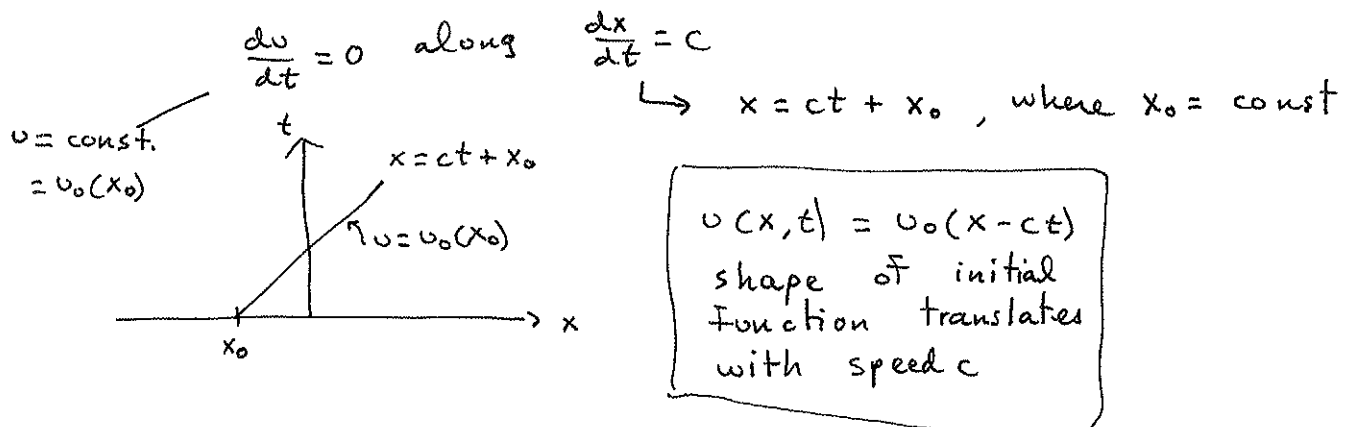 du/dt = 0 along dx/dt = c
↳ x = ct + x₀ , where x₀ = const
u = const.
= u₀(x₀)
t
x = ct + x₀
u = u₀(x₀)
x
x₀
u(x,t) = u₀(x-ct)
shape of initial
function translates
with speed c